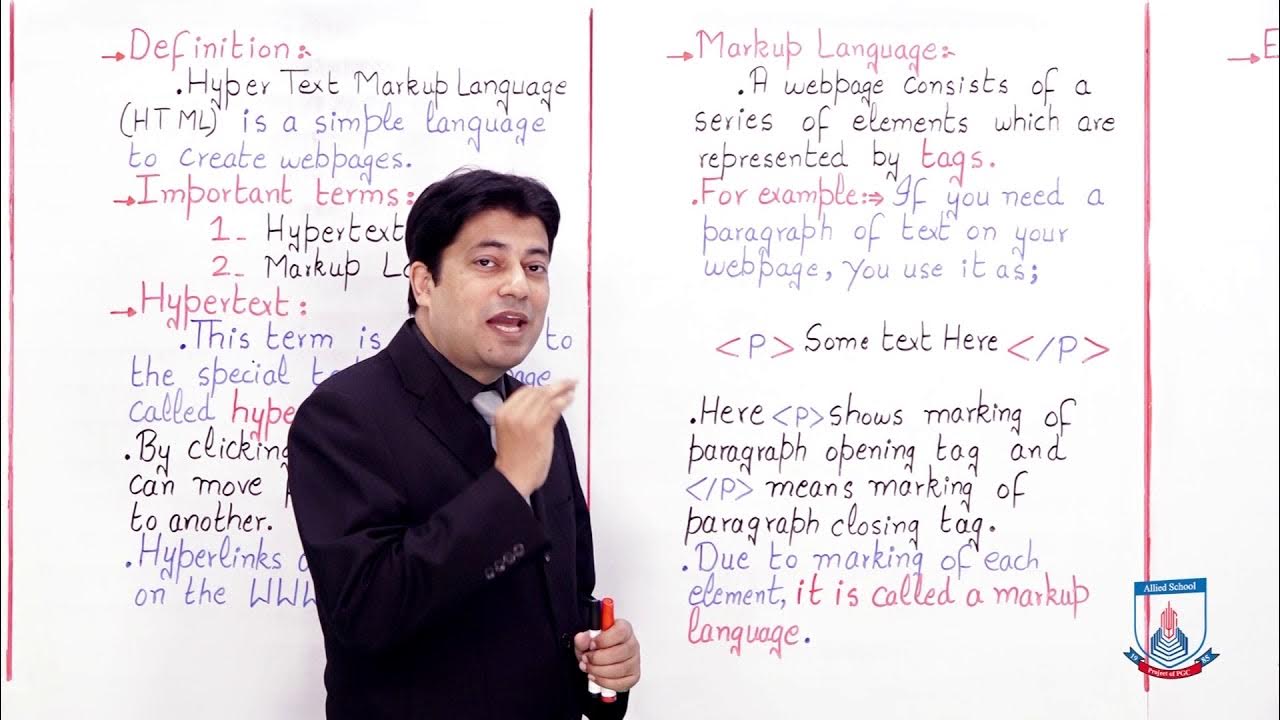 → Definition:-
.Hyper Text Markup Language
(HTML) is a simple language
to create webpages.
→ Important terms:
1_ Hypertext
2_ Markup
→ Hypertext:
.This term is to
the special
called
.By clicking
can move
to another.
.Hyperlinks
on the WWW
→ Markup Language:-
.A webpage consists of a
series of elements which are
represented by tags.
.For example:→ If you need a
paragraph of text on your
webpage, you use it as;
<P> Some text Here </P>
.Here <P> shows marking of
paragraph opening tag and
</P> means marking of
paragraph closing tag.
.Due to marking of each
element, it is called a markup
language.
→ E
Allied School
19 85
Project of PGC